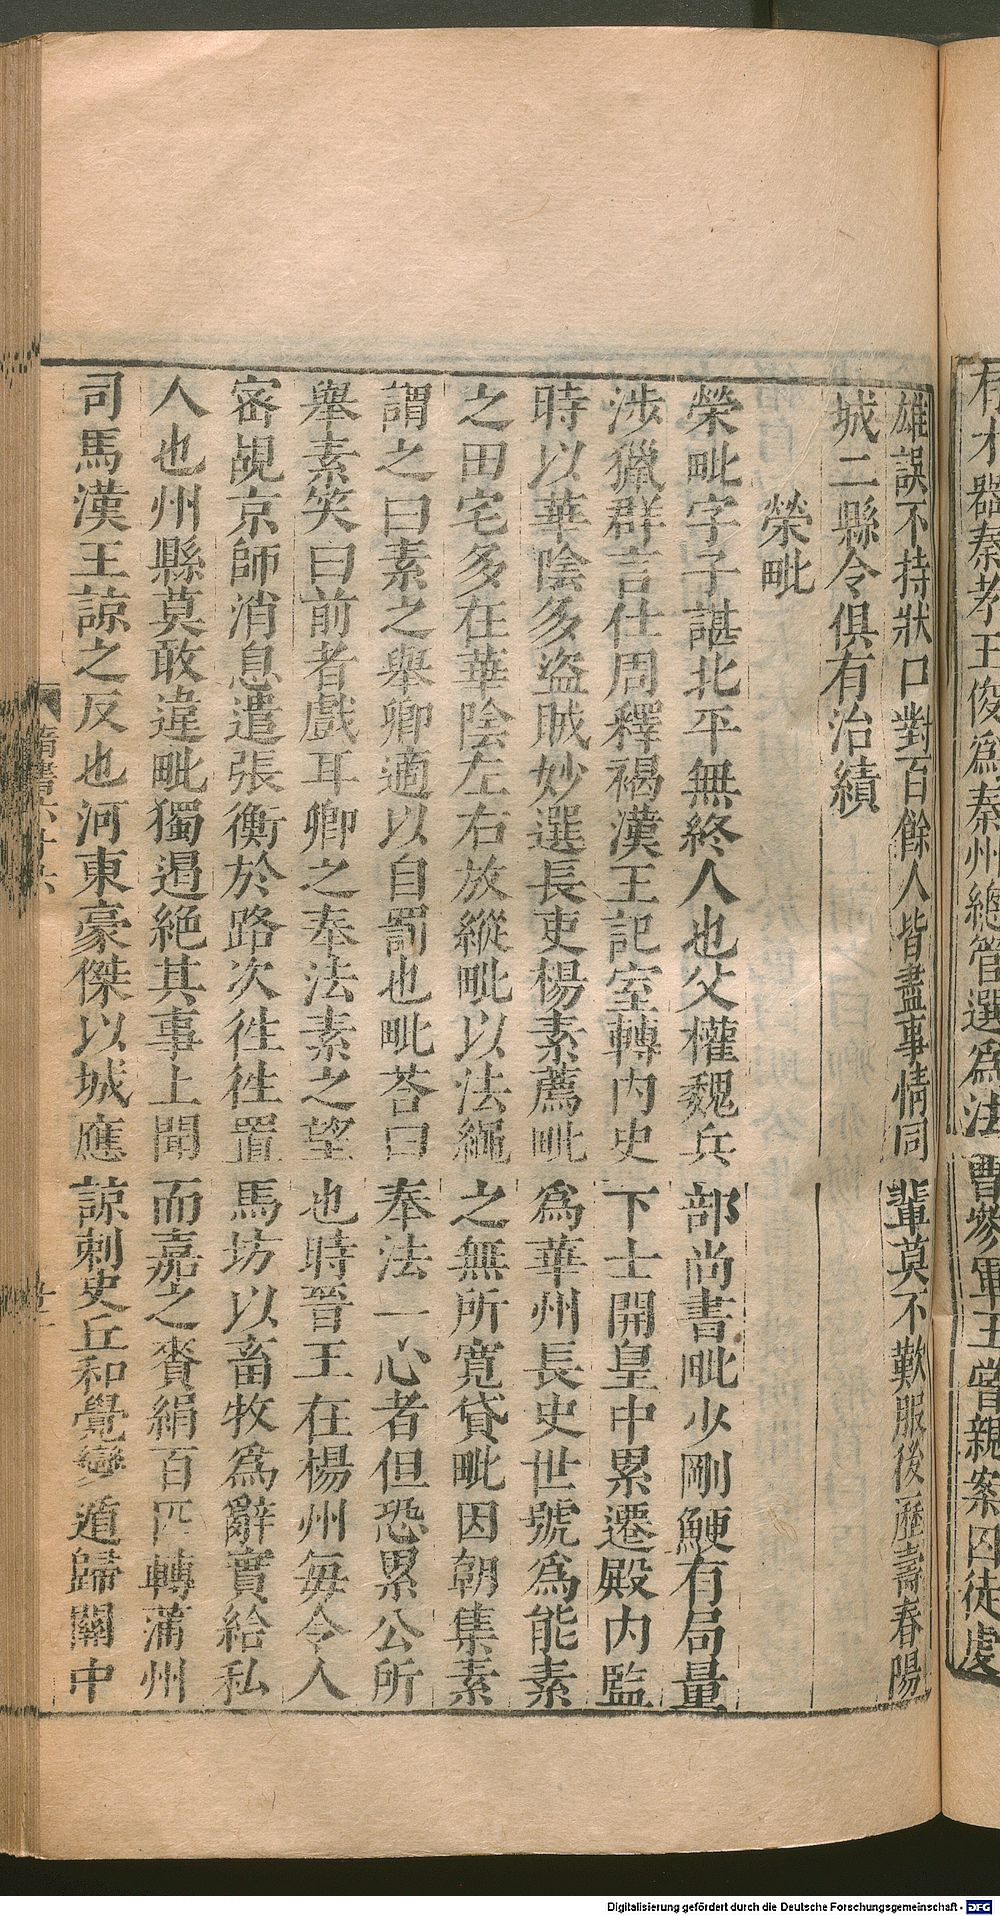 有才器秦孝王俊爲秦州總管選爲法曹參軍王嘗親案囚徒處
雄誤不持狀口對百餘人皆盡事情同輩莫不歎服後歷壽春陽
城二縣令俱有治績
榮毗
榮毗字子諶北平無終人也父權魏兵部尚書毗少剛鯁有局量
涉獵群言仕周釋褐漢王記室轉内史下士開皇中累遷殿内監
時以華陰多盗賊妙選長吏楊素薦毗爲華州長史世號爲能素
之田宅多在華陰左右放縱毗以法繩之無所寛貸毗因朝集素
謂之曰素之舉卿適以自罰也毗荅曰奉法一心者但恐累公所
舉素笑曰前者戲耳卿之奉法素之望也時晉王在楊州每令人
密覘京師消息遣張衡於路次徃徃置馬坊以畜牧爲辭實給私
人也州縣莫敢違毗獨遏絕其事上聞而嘉之賚絹百匹轉蒲州
司馬漢王諒之反也河東豪傑以城應諒刺史丘和覺變遁歸關中
隋書六十六
Digitalisierung gefördert durch die Deutsche Forschungsgemeinschaft - DFG